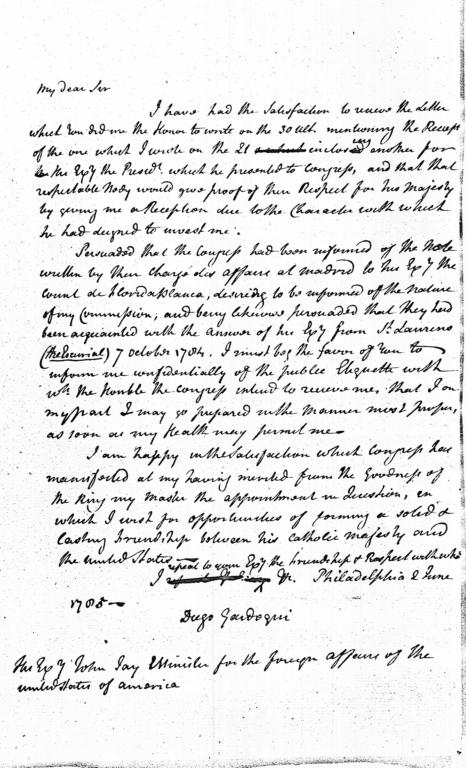 My dear Sir
I have had the Satisfaction to receive the Letter
which You did me the Honor to write on the 30 Ult. mentioning the Receipt
of the one which I wrote on the 21 inclosing another for
His Exy. the Presidt. which he presented to Congress, and that that
respectable Body would give proof of their Respect for his Majesty
by giving me a Reception due to the Character with which
he had deigned to invest me.
Persuaded that the Congress had been informed of the Note
written by their Chargé des Affaires at Madrid to his Exy. the
Count de Florida Blanca, desiring to be informed of the nature
of my Commission; and being likewise persuaded that they had
been acquainted with the answer of his Exy. from St. Laurens
(the Escurial) 7 October 1784. I must beg the favor of You to
inform me confidentially of the public Etiquette with
wh. the Honble the Congress intend to receive me, that I on
my part I may go prepared in the Manner most proper,
as soon as my Health may permit me—
I am happy in the Satisfaction which Congress have
manifested at my having merited from the Goodness of
the King my Master the appointment in Question, in
which I wish for opportunities of forming a solid &
lasting Friendship between his Catholic Majesty and
the United States—
repeat to your Exy. the friendship & Respect with whh
I &r. Philadelphia 2 June
1785—
Diego Gardoqui
His Exy. John Jay Minister for the foreign affairs of the
United States of America